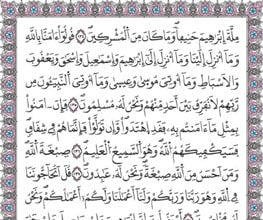 مِلَّةَ إِبْرَٰهِـۧمَ حَنِيفًا ۖ وَمَا كَانَ مِنَ ٱلْمُشْرِكِينَ ۝ قُولُوٓا۟ ءَامَنَّا بِٱللَّهِ
وَمَآ أُنزِلَ إِلَيْنَا وَمَآ أُنزِلَ إِلَىٰٓ إِبْرَٰهِـۧمَ وَإِسْمَٰعِيلَ وَإِسْحَٰقَ وَيَعْقُوبَ
وَٱلْأَسْبَاطِ وَمَآ أُوتِىَ مُوسَىٰ وَعِيسَىٰ وَمَآ أُوتِىَ ٱلنَّبِيُّونَ مِن
رَّبِّهِمْ لَا نُفَرِّقُ بَيْنَ أَحَدٍ مِّنْهُمْ وَنَحْنُ لَهُۥ مُسْلِمُونَ ۝ فَإِنْ ءَامَنُوا۟
بِمِثْلِ مَآ ءَامَنتُم بِهِۦ فَقَدِ ٱهْتَدَوا۟ ۖ وَّإِن تَوَلَّوْا۟ فَإِنَّمَا هُمْ فِى شِقَاقٍ ۖ
فَسَيَكْفِيكَهُمُ ٱللَّهُ ۚ وَهُوَ ٱلسَّمِيعُ ٱلْعَلِيمُ ۝ صِبْغَةَ ٱللَّهِ ۖ
وَمَنْ أَحْسَنُ مِنَ ٱللَّهِ صِبْغَةً ۖ وَنَحْنُ لَهُۥ عَٰبِدُونَ ۝ قُلْ أَتُحَآجُّونَنَا
فِى ٱللَّهِ وَهُوَ رَبُّنَا وَرَبُّكُمْ وَلَنَآ أَعْمَٰلُنَا وَلَكُمْ أَعْمَٰلُكُمْ وَنَحْنُ